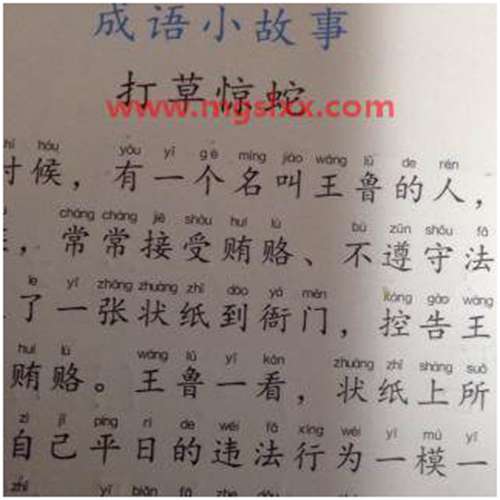 成语小故事
打草惊蛇
www.mgslxx.com
hóu yǒu yī gè míng jiào wáng lǔ de rén
时候，有一个名叫王鲁的人，
cháng cháng jiē shòu huì lù bù zūn shǒu fǎ
，常常接受贿赂、不遵守法
le yī zhāng zhuàng zhǐ dào yá mén kòng gào wáng
了一张状纸到衙门，控告王
huì lù wáng lǔ yī kàn zhuàng zhǐ shàng suǒ
贿赂。王鲁一看，状纸上所
zì jǐ píng rì de wéi fǎ xíng wéi yī mú yī
自己平日的违法行为一模一